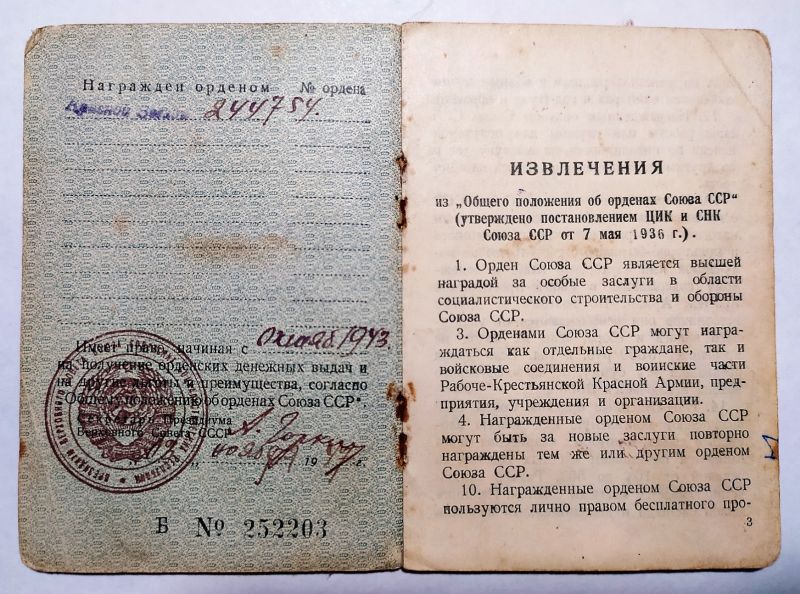 Награжден орденом № ордена
Красной Звезды 244754.
Имеет право начиная с Октяб 1943
на получение орденских денежных выдач и
на другие льготы и преимущества, согласно
"Общему положению об орденах Союза ССР".
Секретарь Президиума
Верховного Совета СССР А. Горкин
ноября 19 г.
Б № 252203
ИЗВЛЕЧЕНИЯ
из „Общего положения об орденах Союза ССР“
(утверждено постановлением ЦИК и СНК
Союза ССР от 7 мая 1936 г.).
1. Орден Союза ССР является высшей
наградой за особые заслуги в области
социалистического строительства и обороны
Союза ССР.
3. Орденами Союза ССР могут награ-
ждаться как отдельные граждане, так и
войсковые соединения и воинские части
Рабоче-Крестьянской Красной Армии, пред-
приятия, учреждения и организации.
4. Награжденные орденом Союза ССР
могут быть за новые заслуги повторно
награждены тем же или другим орденом
Союза ССР.
10. Награжденные орденом Союза ССР
пользуются лично правом бесплатного про-
3